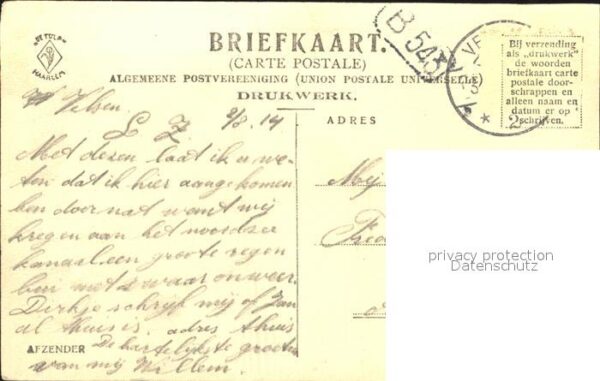 "DE TULP"
HAARLEM
BRIEFKAART.
(CARTE POSTALE)
ALGEMEENE POSTVEREENIGING (UNION POSTALE UNIVERSELLE)
DRUKWERK.
B 543
VE
2
Bij verzending
als „drukwerk"
de woorden
briefkaart carte
postale door-
schrappen en
alleen naam en
datum er op
schrijven.
ADRES
Velsen. 9/8.14
L Z
Met dezen laat ik u we-
ten dat ik hier aangekomen
ben door nat want wij
kregen aan het noordzee
kanaal een groote regen
bui met zwaar onweer.
Dirkje schrijf mij of Jan
al thuis is. adres thuis
AFZENDER De hartelijkste groeten
van mij Willem.
Mej
privacy protection
Datenschutz